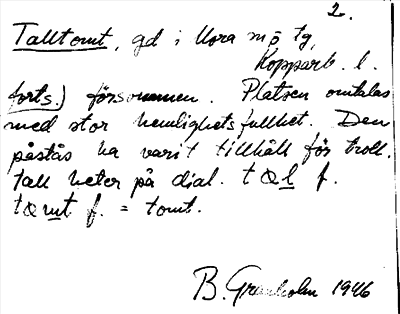 2.
Talltomt, gd i Mora nö tg,
Kopparb. l.
forts.) försommen. Platsen omtalas
med stor hemlighetsfullhet. Den
påstås ha varit tillhåll för troll.
Tall heter på dial. f.
f. = tomt.
B. Granholm 1946